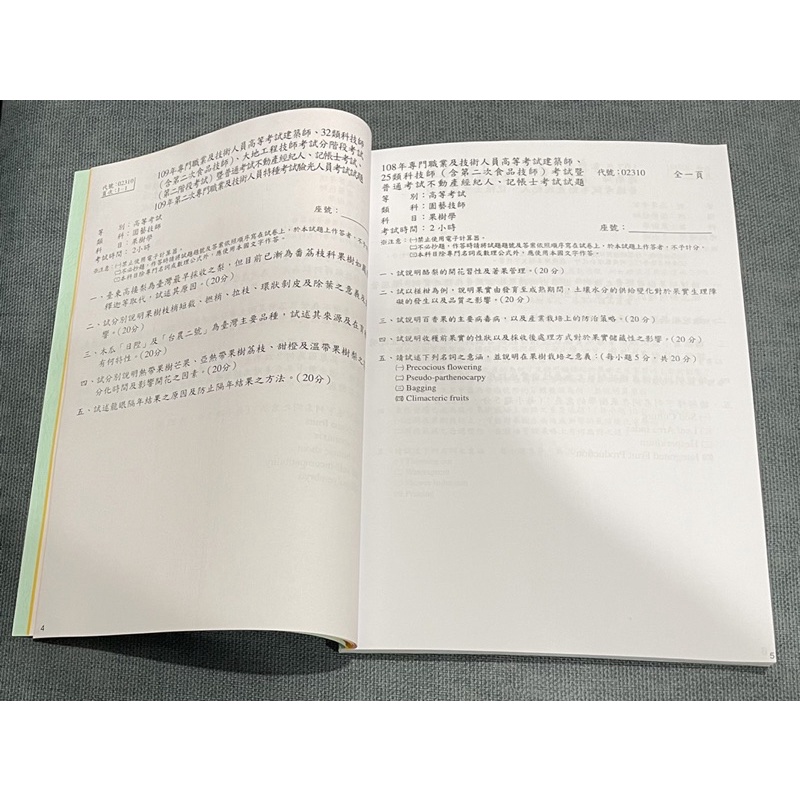 代號：02310
頁次：1-1
109年專門職業及技術人員高等考試建築師、32類科技師
（含第二次食品技師）、大地工程技師考試分階段考試
（第二階段考試）暨普通考試不動產經紀人、記帳士考試、
109年第二次專門職業及技術人員特種考試驗光人員考試試題
等　　別：高等考試
類　　科：園藝技師
科　　目：果樹學
考試時間：2小時
座號：
※注意：㈠禁止使用電子計算器。
㈡不必抄題，作答時請將試題題號及答案依照順序寫在試卷上，於本試題上作答者，不
㈢本科目除專門名詞或數理公式外，應使用本國文字作答。
一、臺東高接梨為臺灣最早採收之梨，但目前已漸為番荔枝科果樹如
釋迦等取代，試述其原因。（20分）
二、試分別說明果樹枝梢短截、撚梢、拉枝、環狀剝皮及除葉之意義及
響。（20分）
三、木瓜「日陞」及「台農二號」為臺灣主要品種，試述其來源及在
有何特性。（20分）
四、試分別說明熱帶果樹芒果、亞熱帶果樹荔枝、甜橙及溫帶果樹梨之
分化時間及影響開花之因素。（20分）
五、試述龍眼隔年結果之原因及防止隔年結果之方法。（20分）
4
108年專門職業及技術人員高等考試建築師、
25類科技師（含第二次食品技師）考試暨
普通考試不動產經紀人、記帳士考試試題
代號：02310
全一頁
等　　別：高等考試
類　　科：園藝技師
科　　目：果樹學
考試時間：2小時
座號：
※注意：㈠禁止使用電子計算器。
㈡不必抄題，作答時請將試題題號及答案依照順序寫在試卷上，於本試題上作答者，不予計分。
㈢本科目除專門名詞或數理公式外，應使用本國文字作答。
一、試說明酪梨的開花習性及著果管理。（20分）
二、試以椪柑為例，說明果實由發育至成熟期間，土壤水分的供給變化對於果實生理障
礙的發生以及品質之影響。（20分）
三、試說明百香果的主要病毒病，以及產業栽培上的防治策略。（20分）
四、試說明收穫前果實的性狀以及採收後處理方式對於果實儲藏性之影響。（20分）
五、請試述下列名詞之意涵，並說明在果樹栽培之意義：（每小題5分，共20分）
㈠ Precocious flowering
㈡ Pseudo-parthenocarpy
㈢ Bagging
㈣ Climacteric fruits
5